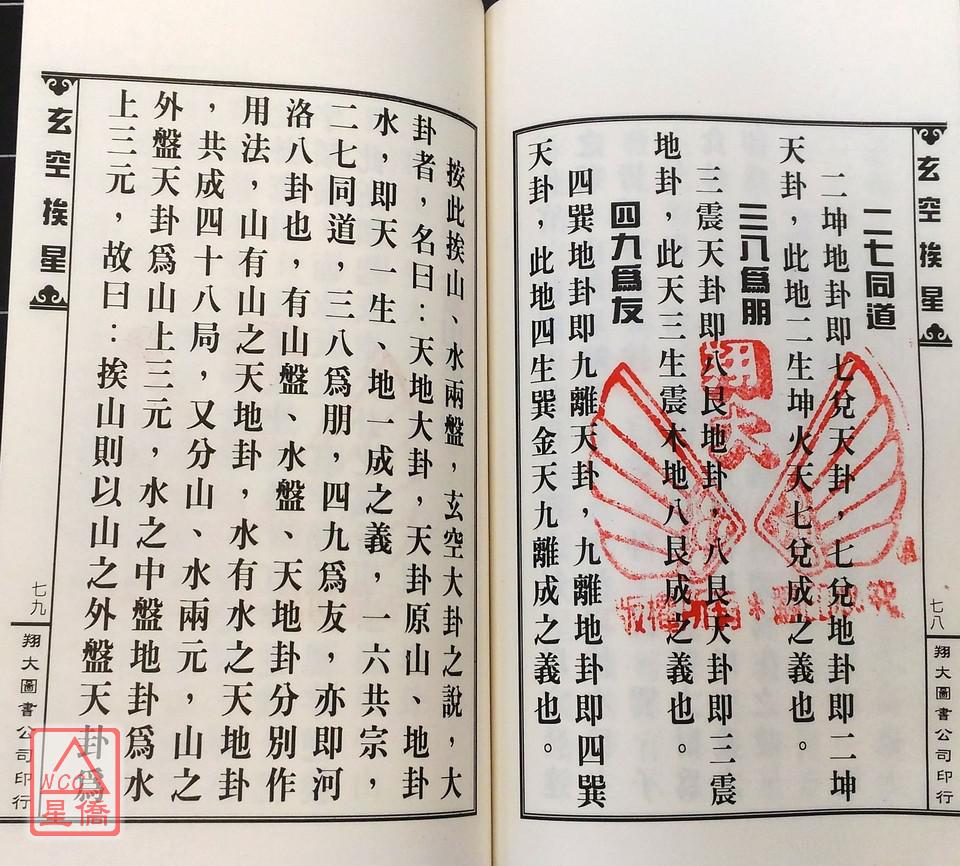 玄空挨星
七八
翔大圖書公司印行
二七同道
二坤地卦即七兌天卦，七兌地卦即二坤
天卦，此地二生坤火天七兌成之義也。
三八爲朋
三震天卦即八艮地卦，八艮天卦即三震
地卦，此天三生震木地八艮成之義也。
四九爲友
四巽地卦即九離天卦，九離地卦即四巽
天卦，此地四生巽金天九離成之義也。
翔大
版權
按此挨山、水兩盤，玄空大卦之說，大
卦者，名曰：天地大卦，天卦原山、地卦
水，即天一生、地一成之義，一六共宗，
二七同道，三八爲朋，四九爲友，亦即河
洛八卦也，有山盤、水盤、天地卦分別作
用法，山有山之天地卦，水有水之天地卦
，共成四十八局，又分山、水兩元，山之
外盤天卦爲山上三元，水之中盤地卦爲水
上三元，故曰：挨山則以山之外盤天卦爲
玄空挨星
七九
翔大圖書公司印行
NCC
星僑